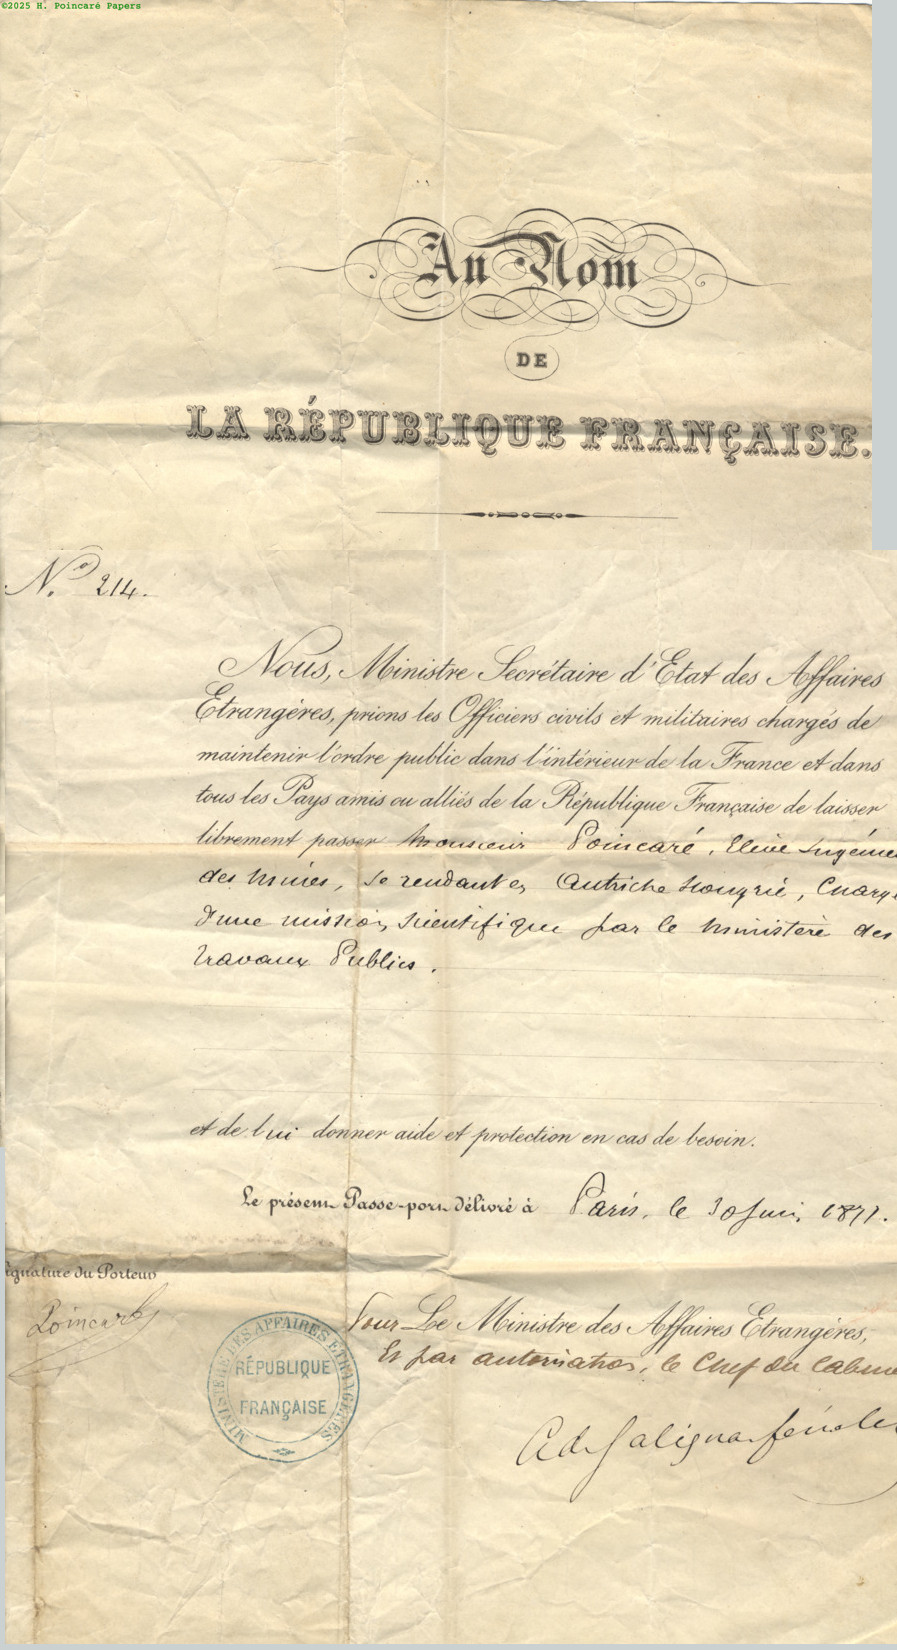 ©2025 H. Poincaré Papers
Au Nom
DE
LA RÉPUBLIQUE FRANÇAISE.
N.º 214.
Nous, Ministre Secrétaire d'Etat des Affaires
Etrangères, prions les Officiers civils et militaires chargés de
maintenir l'ordre public dans l'intérieur de la France et dans
tous les Pays amis ou alliés de la République Française de laisser
librement passer Monsieur Poincaré, Elève Ingénieu
des Mines, se rendant en Autriche Hongrie, Chargé
d'une mission scientifique par le Ministère des
Travaux Publics.
et de lui donner aide et protection en cas de besoin.
Le présent Passe-port délivré à Paris, le 30 Juin 1877.
ignature du Porteur
Poincaré
MINISTERE DES AFFAIRES ETRANGERES
RÉPUBLIQUE
FRANÇAISE
Pour Le Ministre des Affaires Etrangères,
Et par autorisation, le Chef du Cabine